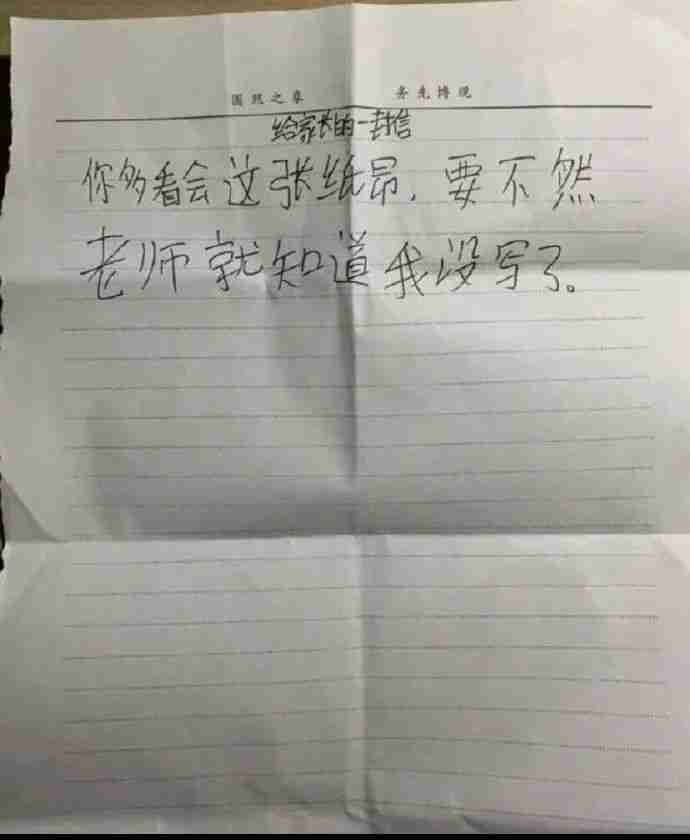 圆然之辜 务先博观
给家长的一封信
你多看会这张纸昂,要不然
老师就知道我没写了。